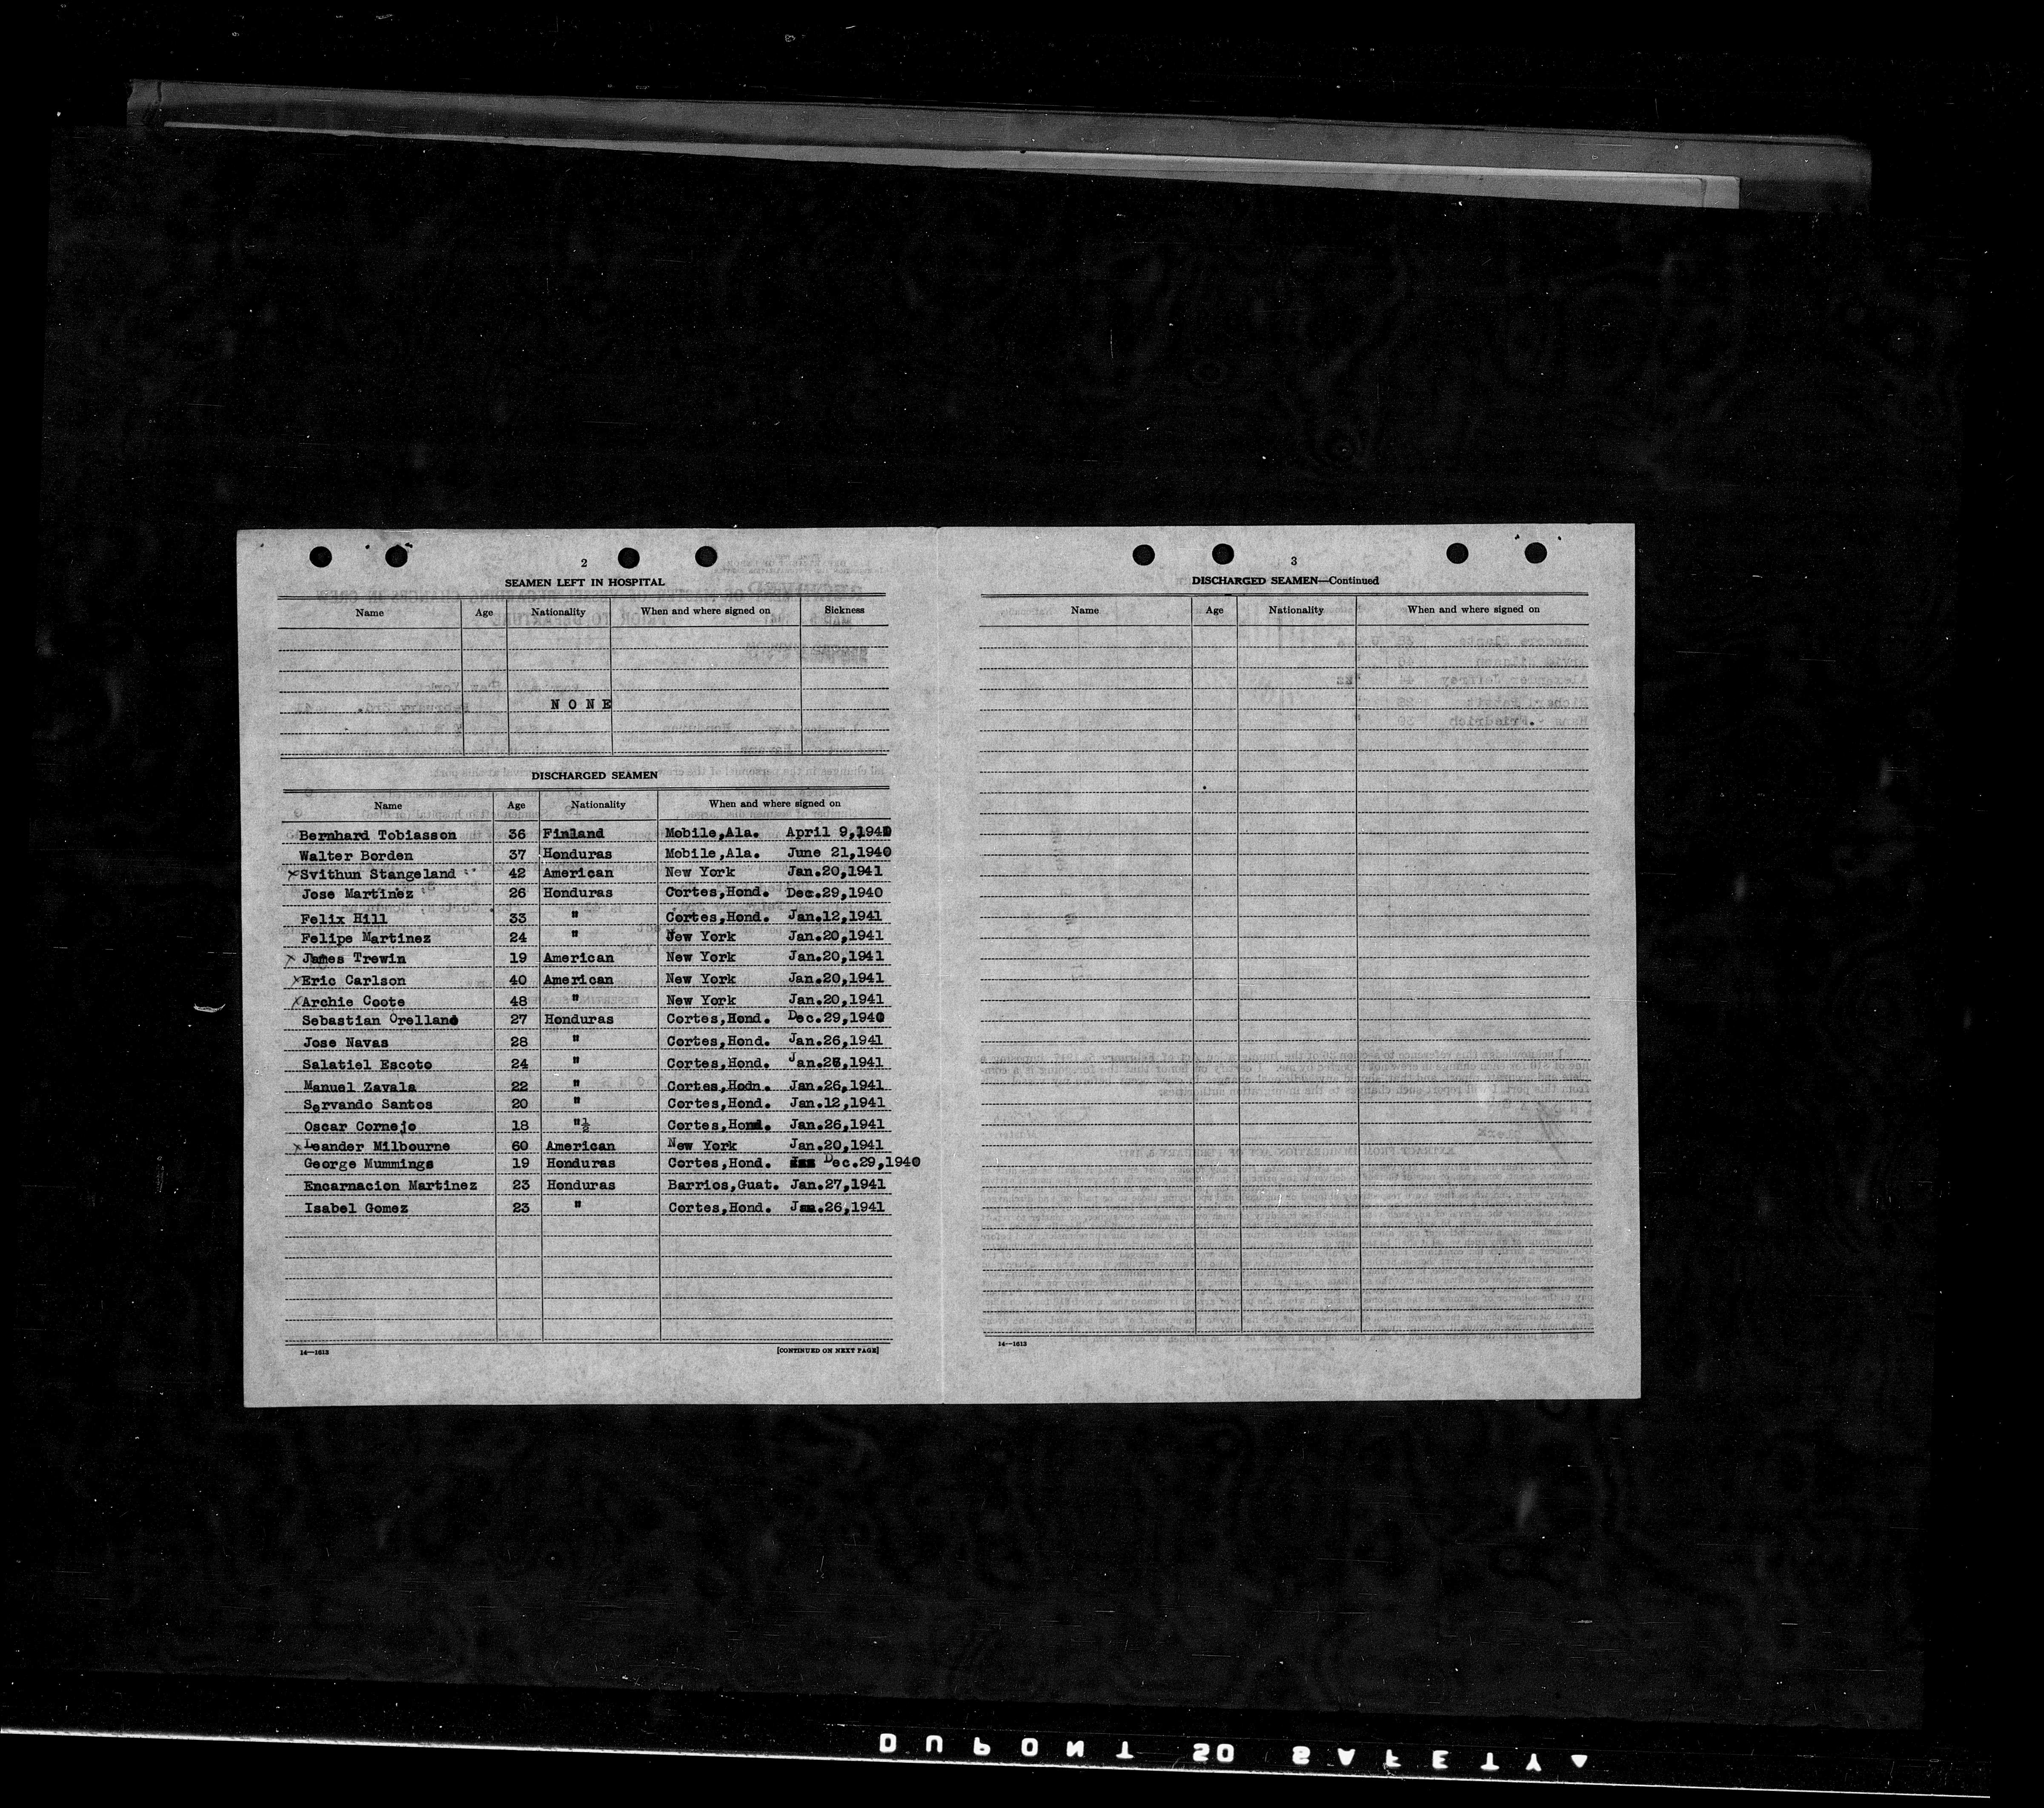 2
SEAMEN LEFT IN HOSPITAL
Name Age Nationality When and where signed on Sickness
N O N E
DISCHARGED SEAMEN
Name Age Nationality When and where signed on
Bernhard Tobiasson 36 Finland Mobile,Ala. April 9,1940
Walter Borden 37 Honduras Mobile,Ala. June 21,1940
xSvithun Stangeland 42 American New York Jan.20,1941
Jose Martinez 26 Honduras Cortes,Hond. Dec.29,1940
Felix Hill 33 " Cortes,Hond. Jan.12,1941
Felipe Martinez 24 " New York Jan.20,1941
x James Trewin 19 American New York Jan.20,1941
xEric Carlson 40 American New York Jan.20,1941
xArchie Coote 48 " New York Jan.20,1941
Sebastian Orellano 27 Honduras Cortes,Hond. Dec.29,1940
Jose Navas 28 " Cortes,Hond. Jan.26,1941
Salatiel Escoto 24 " Cortes,Hond. Jan.26,1941
Manuel Zavala 22 " Cortes,Hodn. Jan.26,1941
Servando Santos 20 " Cortes,Hond. Jan.12,1941
Oscar Cornejo 18 "½ Cortes,Hond. Jan.26,1941
xLeander Milbourne 60 American New York Jan.20,1941
George Mummings 19 Honduras Cortes,Hond. Dec.29,1940
Encarnacion Martinez 23 Honduras Barrios,Guat. Jan.27,1941
Isabel Gomez 23 " Cortes,Hond. Jan.26,1941
14—1613 [CONTINUED ON NEXT PAGE]
3
DISCHARGED SEAMEN—Continued
Name Age Nationality When and where signed on
14—1613
DUPONT 50 SAFETY